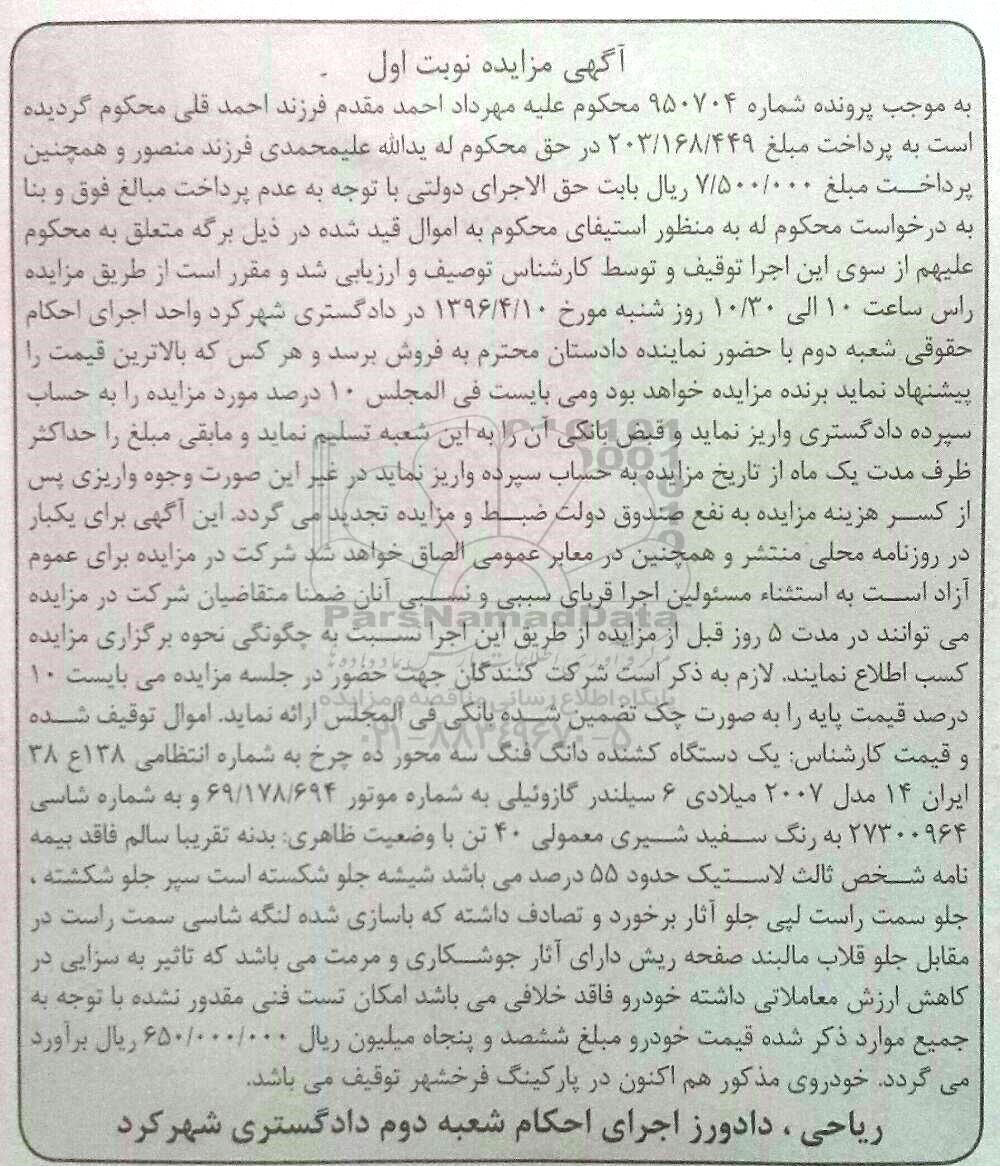 آگهی مزایده نوبت اول
به موجب پرونده شماره ۹۵۰۷۰۴ محکوم علیه مهرداد احمد مقدم فرزند احمد قلی محکوم گردیده
است به پرداخت مبلغ ۲۰۳/۱۶۸/۴۴۹ در حق محکوم له یدالله علیمحمدی فرزند منصور و همچنین
پرداخت مبلغ ۷/۵۰۰/۰۰۰ ریال بابت حق الاجرای دولتی با توجه به عدم پرداخت مبالغ فوق و بنا
به درخواست محکوم له به منظور استیفای محکوم به اموال قید شده در ذیل برگه متعلق به محکوم
علیهم از سوی این اجرا توقیف و توسط کارشناس توصیف و ارزیابی شد و مقرر است از طریق مزایده
راس ساعت ۱۰ الی ۱۰/۳۰ روز شنبه مورخ ۱۳۹۶/۴/۱۰ در دادگستری شهرکرد واحد اجرای احکام
حقوقی شعبه دوم با حضور نماینده دادستان محترم به فروش برسد و هر کس که بالاترین قیمت را
پیشنهاد نماید برنده مزایده خواهد بود ومی بایست فی المجلس ۱۰ درصد مورد مزایده را به حساب
سپرده دادگستری واریز نماید و قبض بانکی آن را به این شعبه تسلیم نماید و مابقی مبلغ را حداکثر
ظرف مدت یک ماه از تاریخ مزایده به حساب سپرده واریز نماید در غیر این صورت وجوه واریزی پس
از کسر هزینه مزایده به نفع صندوق دولت ضبط و مزایده تجدید می گردد. این آگهی برای یکبار
در روزنامه محلی منتشر و همچنین در معابر عمومی الصاق خواهد شد شرکت در مزایده برای عموم
آزاد است به استثناء مسئولین اجرا قربای سببی و نسبی آنان ضمنا متقاضیان شرکت در مزایده
ParsNamadData
می توانند در مدت ۵ روز قبل از مزایده از طریق این اجرا نسبت به چگونگی نحوه برگزاری مزایده
کسب اطلاع نمایند. لازم به ذکر است شرکت کنندگان جهت حضور در جلسه مزایده می بایست ۱۰
پایگاه اطلاع رسانی مناقصه و مزایده
درصد قیمت پایه را به صورت چک تضمین شده بانکی فی المجلس ارائه نماید. اموال توقیف شده
۰۲۱-۸۸۳۴۹۶۷۰-۵
و قیمت کارشناس: یک دستگاه کشنده دانگ فنگ سه محور ده چرخ به شماره انتظامی ۱۳۸ع ۳۸
ایران ۱۴ مدل ۲۰۰۷ میلادی ۶ سیلندر گازوئیلی به شماره موتور ۶۹/۱۷۸/۶۹۴ و به شماره شاسی
۲۷۳۰۰۹۶۴ به رنگ سفید شیری معمولی ۴۰ تن با وضعیت ظاهری: بدنه تقریبا سالم فاقد بیمه
نامه شخص ثالث لاستیک حدود ۵۵ درصد می باشد شیشه جلو شکسته است سپر جلو شکشته ،
جلو سمت راست لپی جلو آثار برخورد و تصادف داشته که باسازی شده لنگه شاسی سمت راست در
مقابل جلو قلاب مالبند صفحه ریش دارای آثار جوشکاری و مرمت می باشد که تاثیر به سزایی در
کاهش ارزش معاملاتی داشته خودرو فاقد خلافی می باشد امکان تست فنی مقدور نشده با توجه به
جمیع موارد ذکر شده قیمت خودرو مبلغ ششصد و پنجاه میلیون ریال ۶۵۰/۰۰۰/۰۰۰ ریال برآورد
می گردد. خودروی مذکور هم اکنون در پارکینگ فرخشهر توقیف می باشد.
ریاحی ، دادورز اجرای احکام شعبه دوم دادگستری شهرکرد